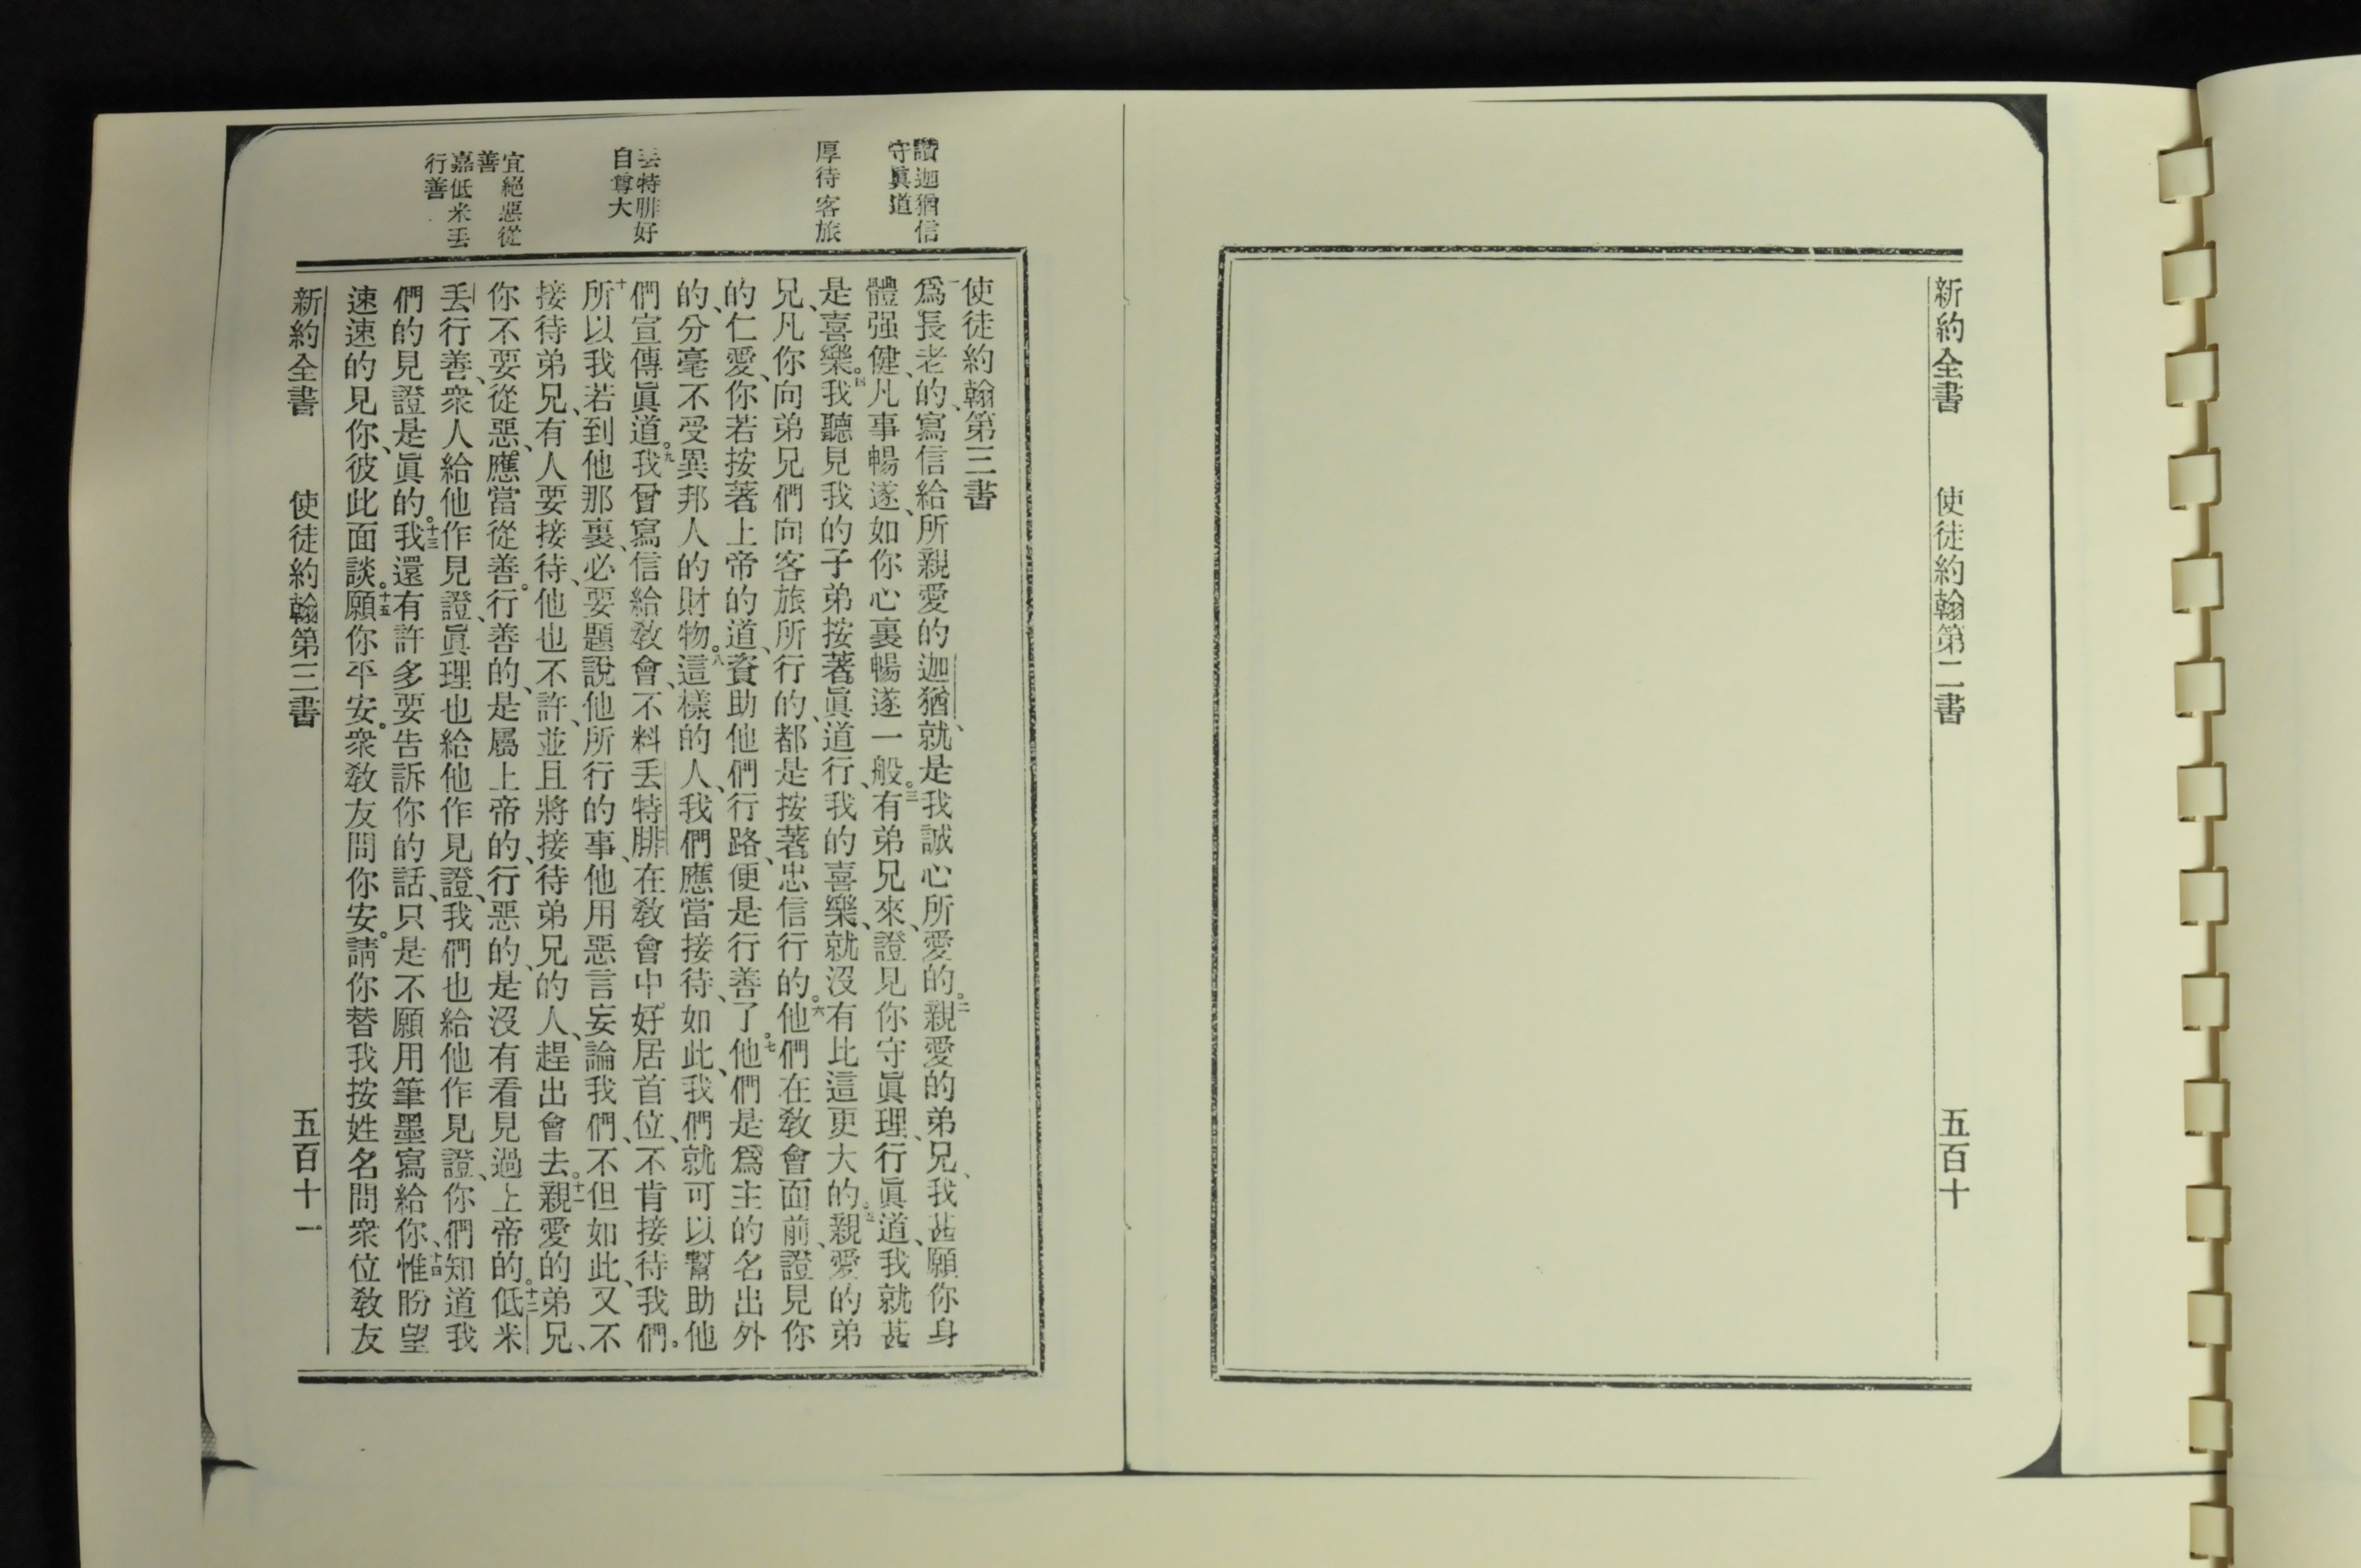 新約全書 使徒約翰第二書 五百十
讚迦猶信
守眞道
厚待客旅
丟特腓好
自尊大
宜絕惡從
善
嘉低米丟
行善
使徒約翰第三書
一爲長老的、寫信給所親愛的迦猶、就是我誠心所愛的。二親愛的弟兄、我甚願你身
體强健、凡事暢遂、如你心裏暢遂一般。三有弟兄來、證見你守眞理、行眞道、我就甚
是喜樂。四我聽見我的子弟按著眞道行、我的喜樂、就沒有比這更大的。五親愛的弟
兄、凡你向弟兄們向客旅所行的、都是按著忠信行的。六他們在敎會面前、證見你
的仁愛、你若按著上帝的道、資助他們行路、便是行善了。七他們是爲主的名出外
的、分毫不受異邦人的財物。八這樣的人、我們應當接待、如此、我們就可以幫助他
們宣傳眞道。九我曾寫信給敎會、不料丟特腓在敎會中好居首位、不肯接待我們。
十所以我若到他那裏、必要題說他所行的事、他用惡言妄論我們、不但如此、又不
接待弟兄、有人要接待、他也不許、並且將接待弟兄的人、趕出會去。十一親愛的弟兄、
你不要從惡、應當從善。行善的、是屬上帝的、行惡的、是沒有看見過上帝的。十二低米
丟行善、衆人給他作見證、眞理也給他作見證、我們也給他作見證、你們知道我
們的見證是眞的。十三我還有許多要告訴你的話、只是不願用筆墨寫給你、十四惟盼望
速速的見你、彼此面談。十五願你平安。衆敎友問你安。請你替我按姓名問衆位敎友
新約全書 使徒約翰第三書 五百十一